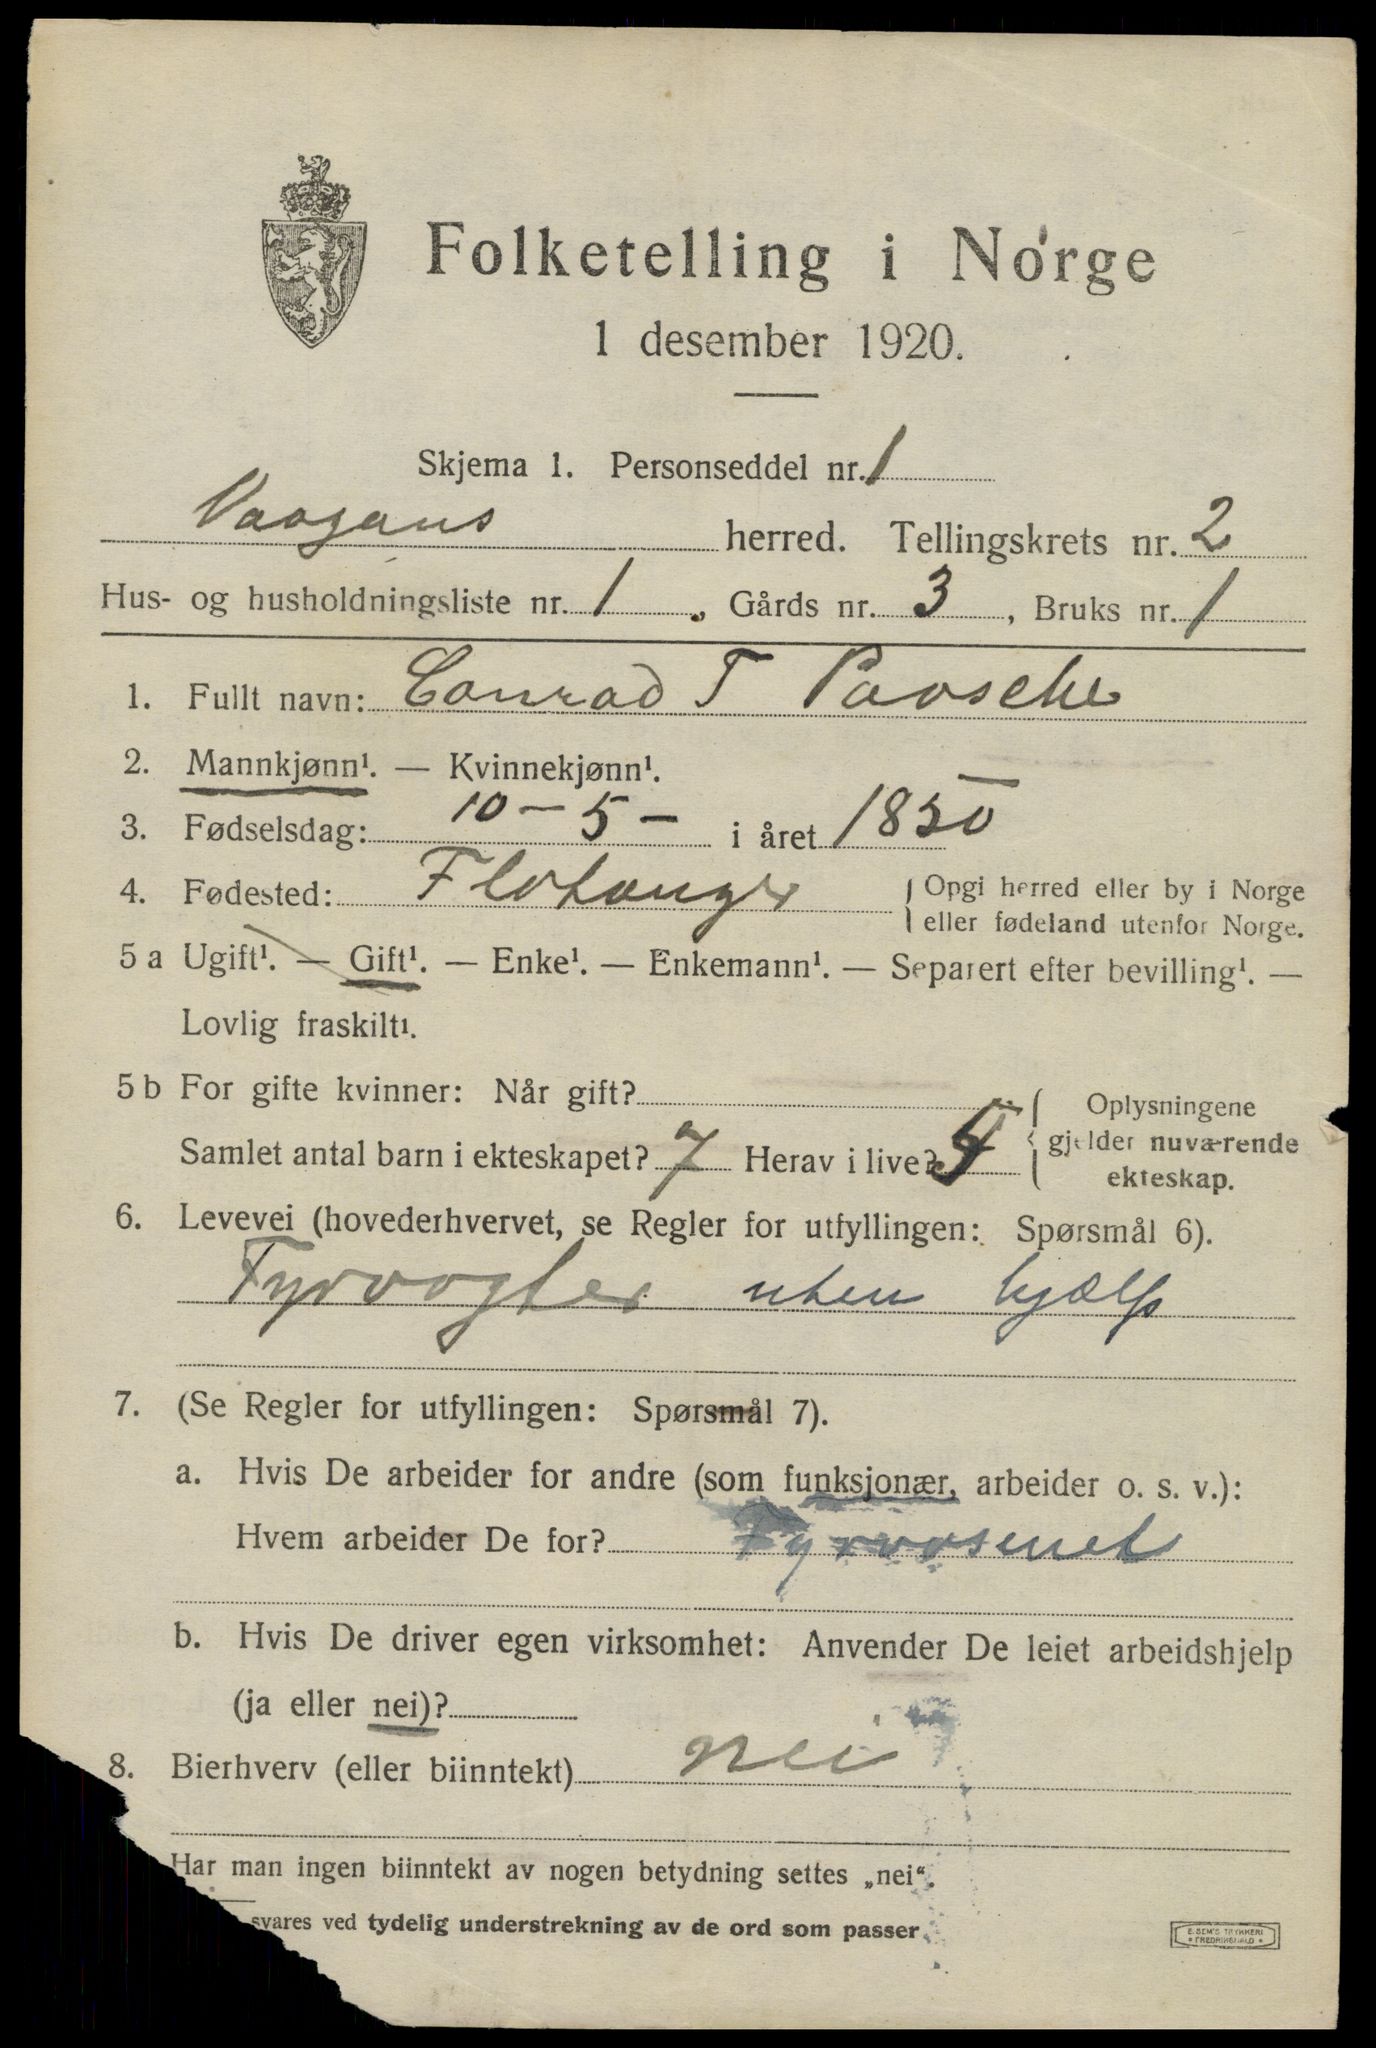 Folketelling i Norge
1 desember 1920.
Skjema 1. Personseddel nr. 1
Vaagans herred. Tellingskrets nr. 2
Hus- og husholdningsliste nr. 1, Gårds nr. 3, Bruks nr. 1
1. Fullt navn: Conrad T Paasche
2. Mannkjønn¹. — Kvinnekjønn¹.
3. Fødselsdag: 10 – 5 – i året 1850
4. Fødested: Flatanger { Opgi herred eller by i Norge
eller fødeland utenfor Norge.
5 a Ugift¹. — Gift¹. — Enke¹. — Enkemann¹. — Separert efter bevilling¹. —
Lovlig fraskilt¹.
5 b For gifte kvinner: Når gift?
Samlet antal barn i ekteskapet? 7 Herav i live?
{ Oplysningene
gjelder nuværende
ekteskap.
6. Levevei (hovederhvervet, se Regler for utfyllingen: Spørsmål 6).
Fyrvogter uten hjælp
7. (Se Regler for utfyllingen: Spørsmål 7).
a. Hvis De arbeider for andre (som funksjonær, arbeider o. s. v.):
Hvem arbeider De for? Fyrvæsenet
b. Hvis De driver egen virksomhet: Anvender De leiet arbeidshjelp
(ja eller nei)?
8. Bierhverv (eller biinntekt) nei
Har man ingen biinntekt av nogen betydning settes „nei“.
svares ved tydelig understrekning av de ord som passer
E. SEM'S TRYKKERI
FREDRIKSHALD